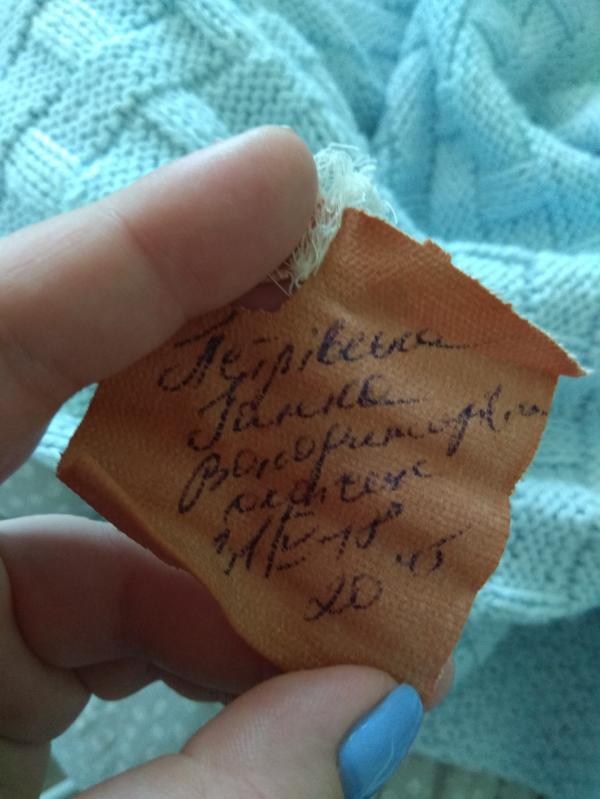 Петрівська
Ганна
Володимирівна
хлопчик
IV-18 45
20